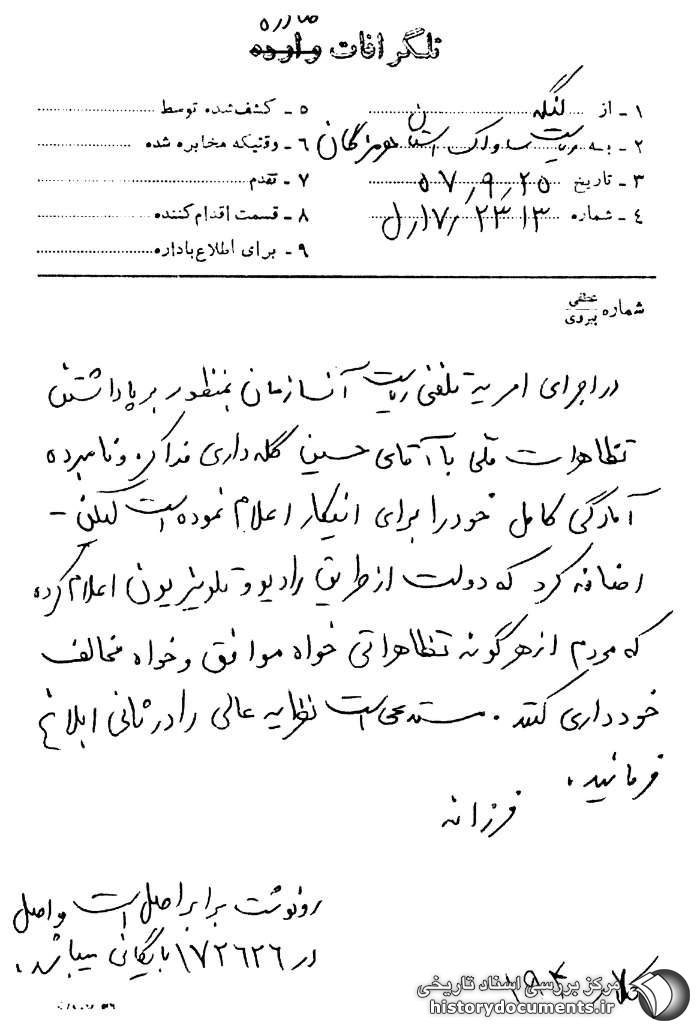 صادره
تلگرافات وارده
۱ - از لنگه
۲ - به ریاست ساواک استان هرمزگان
۳ - تاریخ ۲۵ / ۹ / ۵۷
۴ - شماره ۲۳۱۳ / ۱۷ل
۵ - کشف‌شده توسط
۶ - وقتیکه مخابره شده
۷ - تقدم
۸ - قسمت اقدام‌کننده
۹ - برای اطلاع باداره
شماره عطفی
پیروی
در اجرای امریه تلفنی ریاست آنسازمان بمنظور برپا داشتن
تظاهرات ملی با آقای حسین گله‌داری مذاکره و نامبرده
آمادگی کامل خود را برای اینکار اعلام نموده است لیکن -
اضافه کرد که دولت از طریق رادیو و تلویزیون اعلام کرده
که مردم از هرگونه تظاهراتی خواه موافق و خواه مخالف
خودداری کنند . مستدعی است نظریه عالی را در ثانی ابلاغ
فرمائید .
فرزانه
رونوشت برابر اصل است و اصل
در ۱۷۲۶۲۶ بایگانی میباشد .
مرکز بررسی اسناد تاریخی
historydocuments.ir